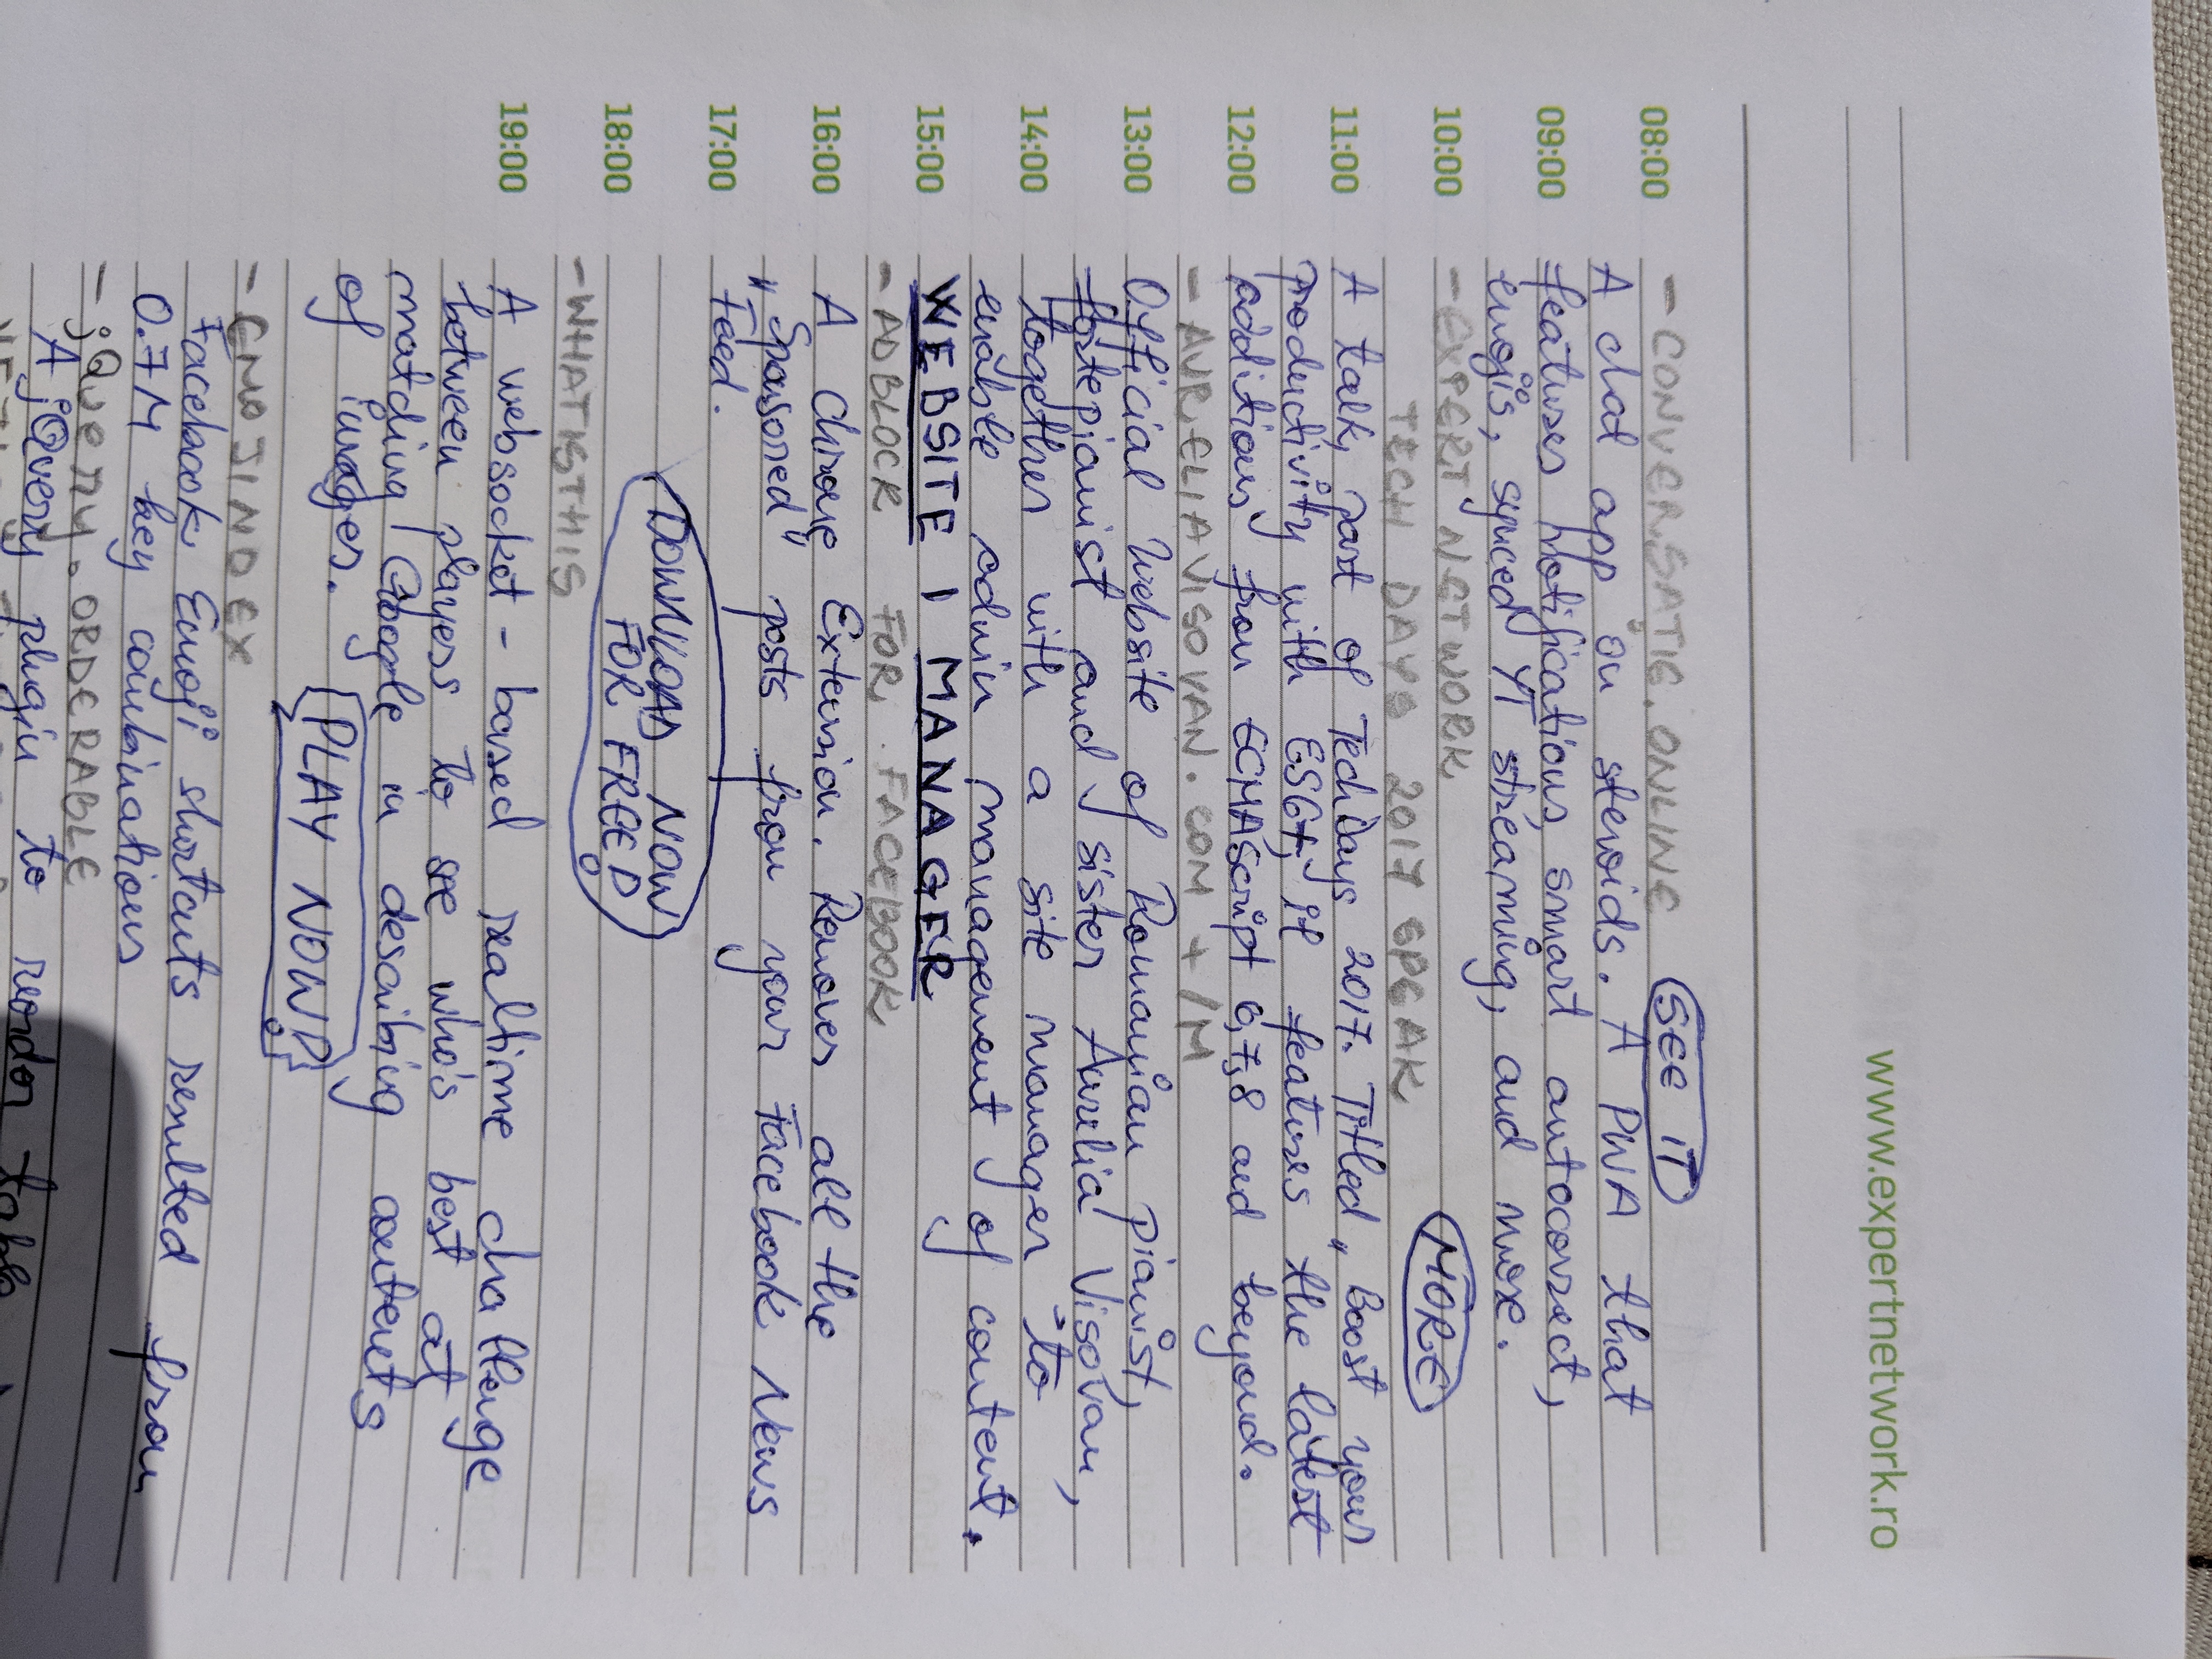 www.expertnetwork.ro
08:00 - CONVERSAȚIE.ONLINE SEE IT
A chat app on steroids. A PWA that
09:00 features notifications, smart autocorrect,
emojis, synced YT streaming, and more.
10:00 - EXPERT NETWORK MORE
TECH DAYS 2017 SPEAK
11:00 A talk, part of TechDays 2017. Titled „Boost your
productivity with ES6+", it features the latest
12:00 additions from ECMAScript 6,7,8 and beyond.
- AURELIAVISOVAN.COM + /M
13:00 Official Website of Romanian pianist,
fortepianist and sister Aurelia Vișovan,
14:00 together with a site manager to
enable admin management of content.
15:00 WEBSITE | MANAGER
- ADBLOCK FOR FACEBOOK
16:00 A Chrome Extension. Removes all the
„Sponsored" posts from your Facebook News
17:00 Feed.
DOWNLOAD NOW
18:00 FOR FREE!
- WHATISTHIS
19:00 A websocket-based realtime challenge
between players to see who's best at
matching Google in describing contents
of images. PLAY NOW!
- EMOJINDEX
Facebook Emoji shortcuts resulted from
0.7M key combinations
- jQuery.ORDERABLE
A jQuery plugin to reorder table